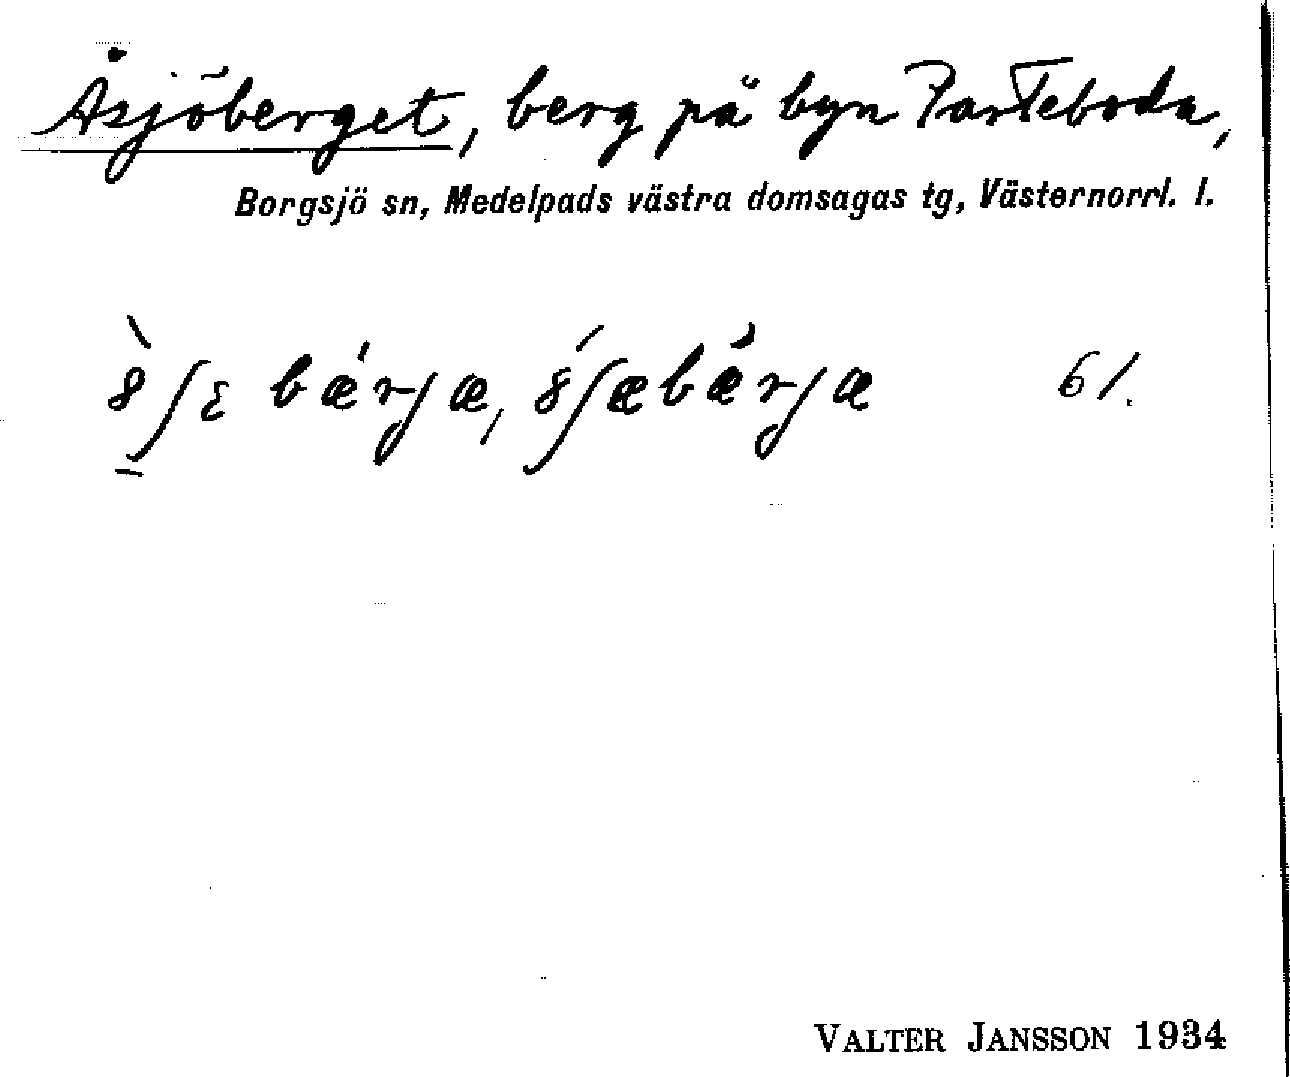 Åsjöberget, berg på byn Parteboda,
Borgsjö sn, Medelpads västra domsagas tg, Västernorrl. l.
61.
VALTER JANSSON 1934